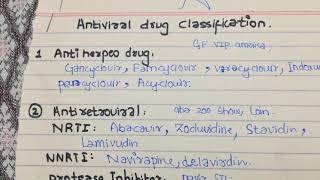 Antiviral drug classification.
GF VIP america,
1 Antiherpeo drug.
Gancyclouir, Famcyclouir, varacyclouir, Indoxur
penacyclouir, Acyclour.
② Antiretroviral: aba zoo show, Lain.
NRTI: Abacavir, Zoduvidine, Stavidin,
Lamivudin
NNRTI: Navirapine, delavirdin.
protease Inhibitor: